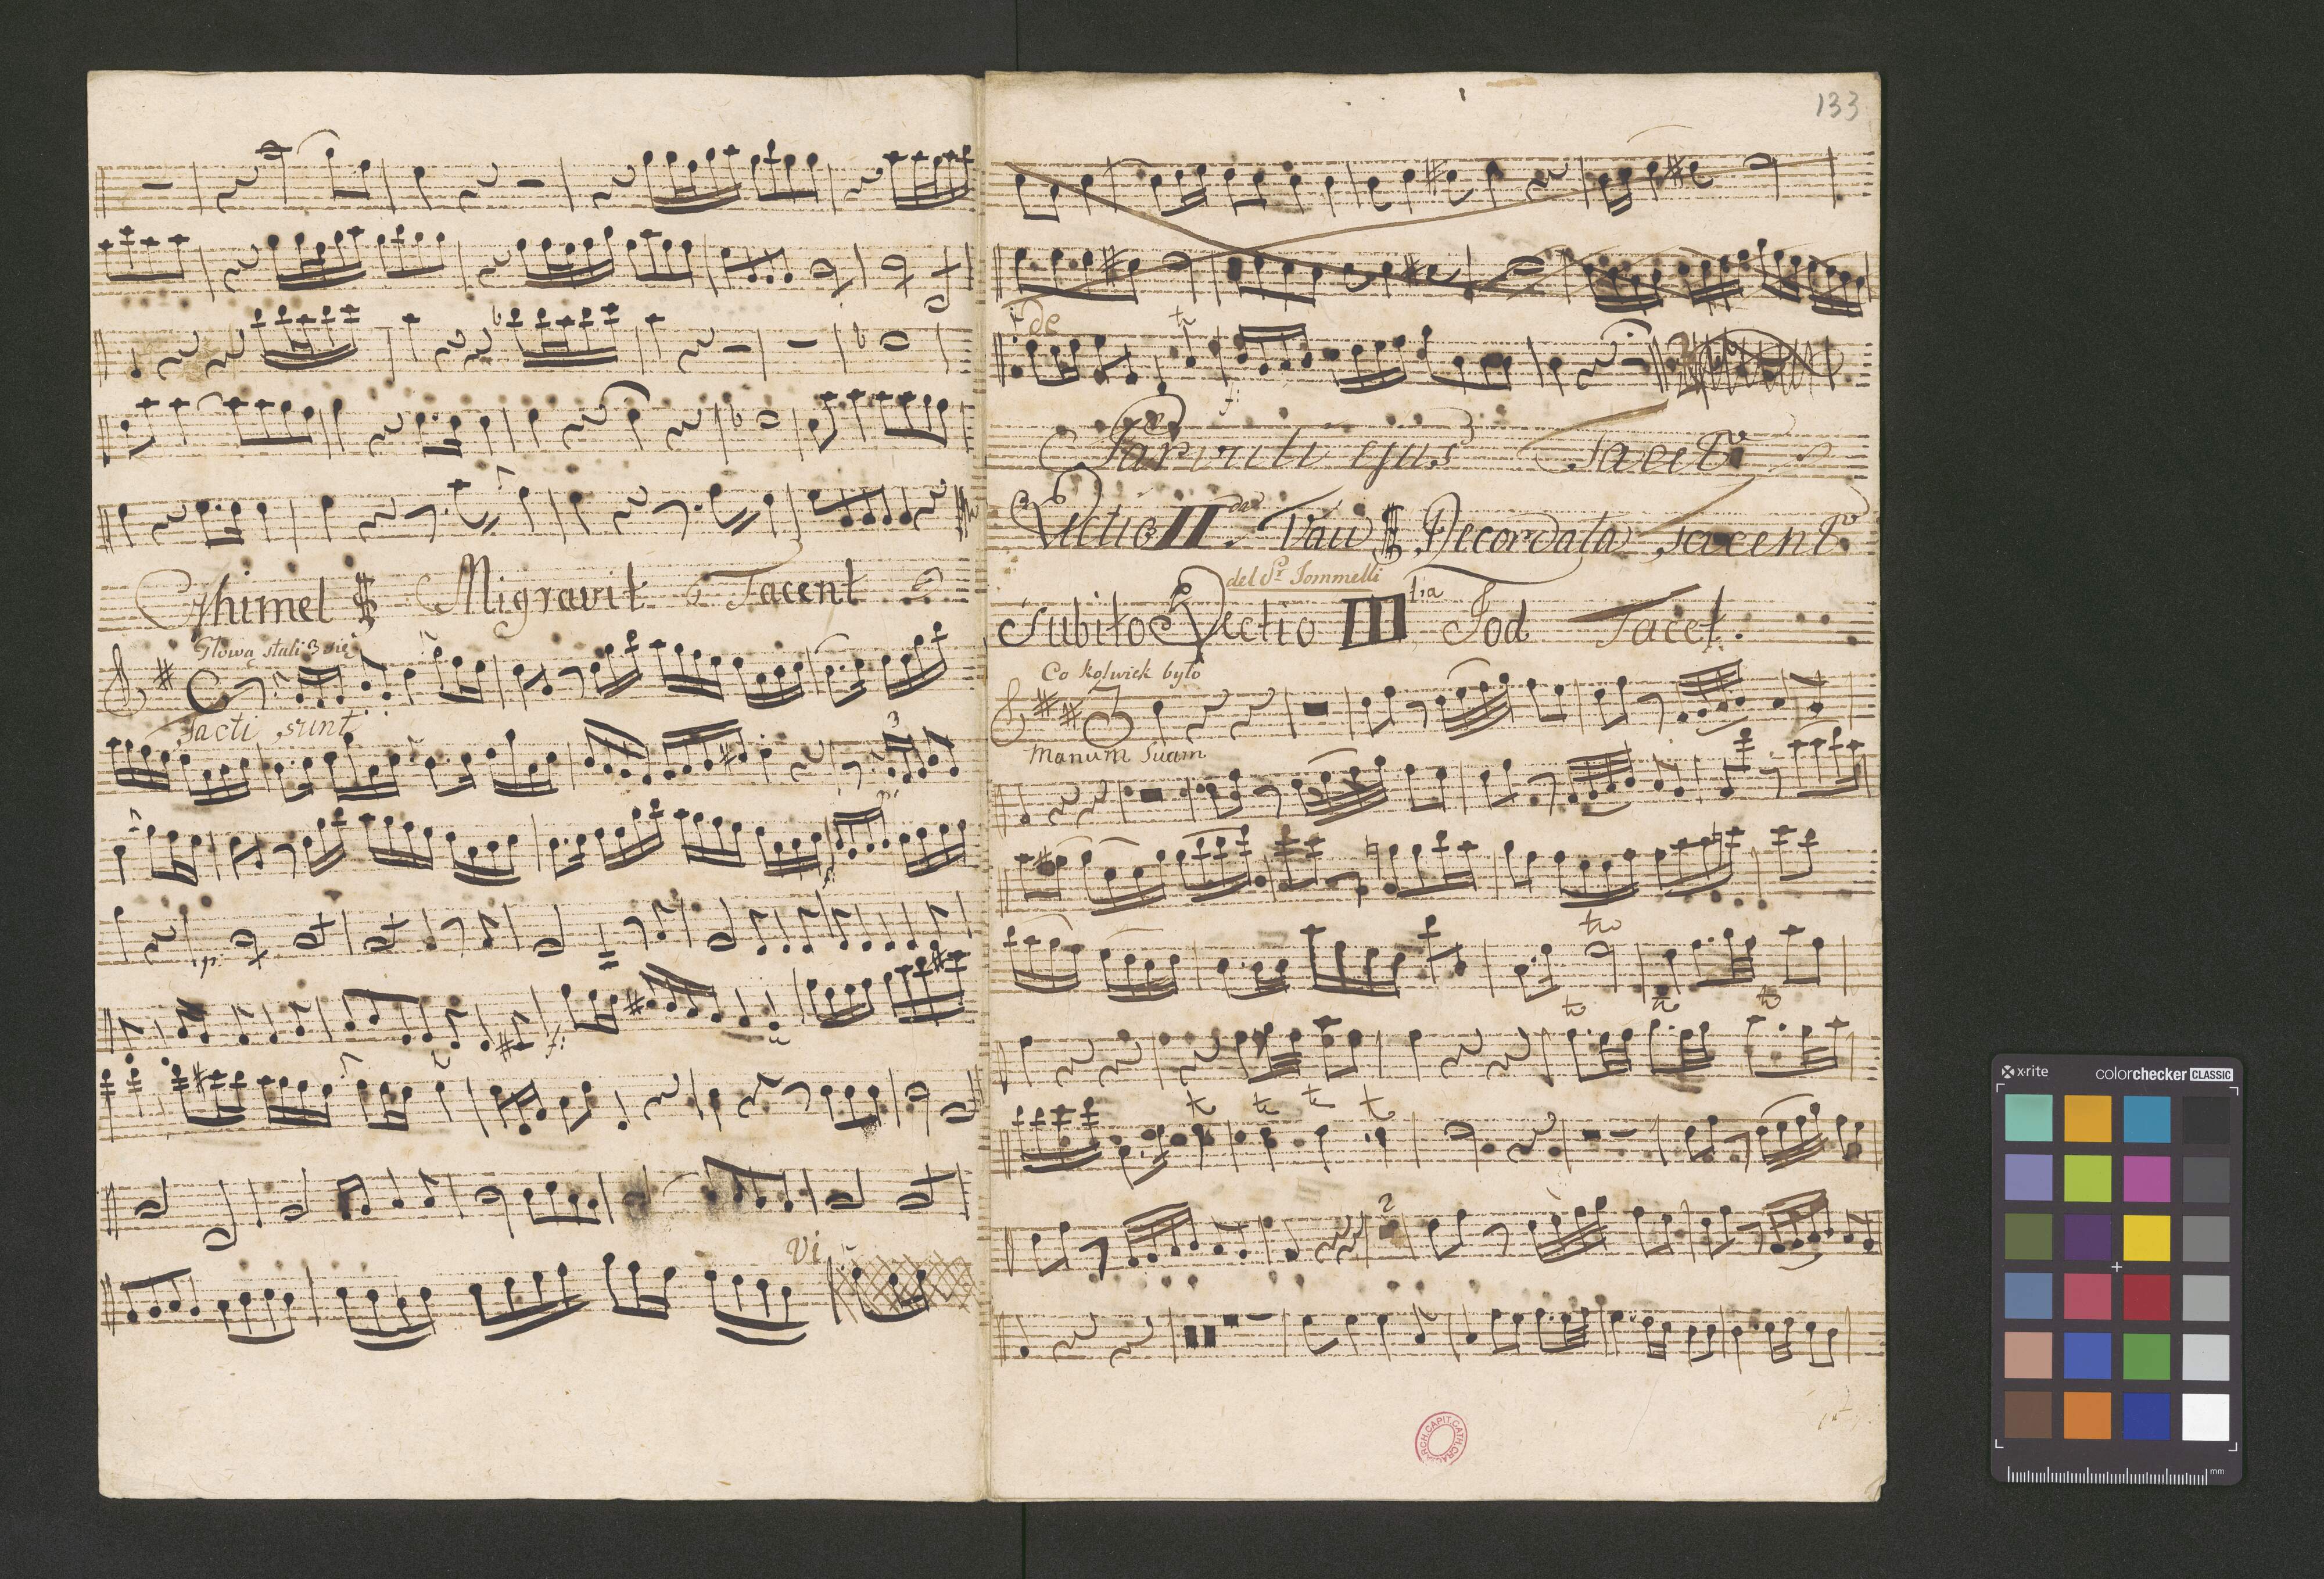 Ghimel Migravit Tacent
Głową stali się
Facti sunt
3
p:
p:
f:
Vi
133
de
f:
Parvuli ejus Tacet
Lectio II da Vau Recordata Tacent
del Sr Jommelli
Subito Lectio III tia Jod Tacet.
Co kolwiek było
Manum Suam
2
ARCH. CAPIT. CATH. CRAC.
x-rite colorchecker CLASSIC
mm